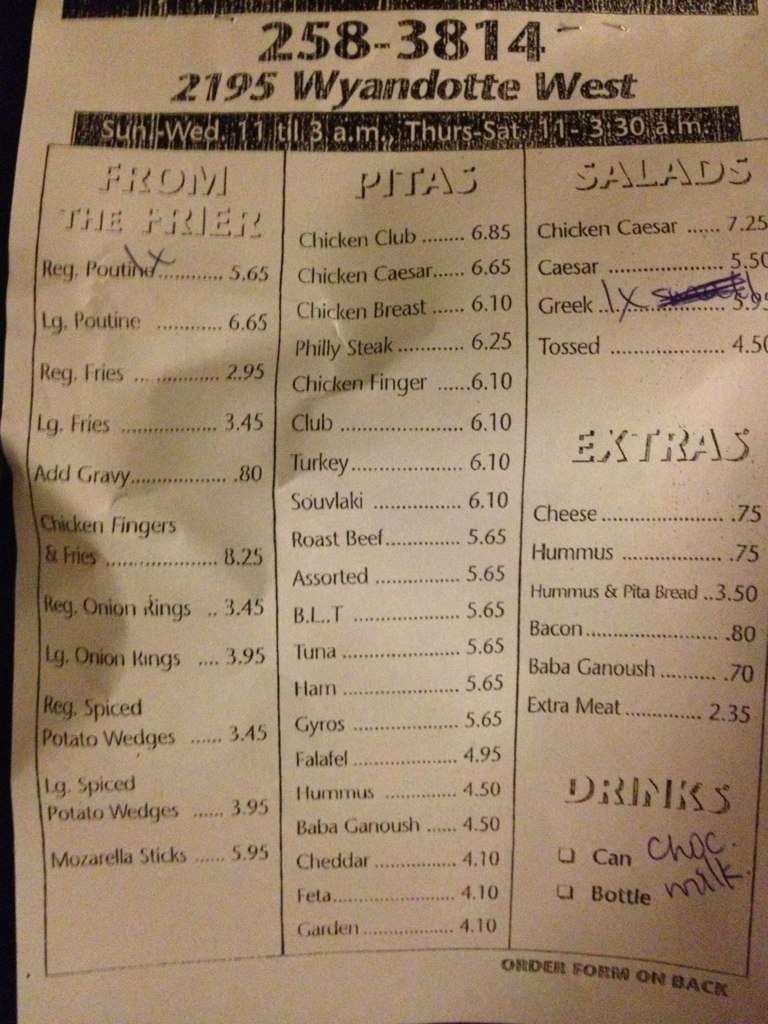 258-3814
2195 Wyandotte West
Sun-Wed. 11 til 3 a.m., Thurs-Sat. 11- 3:30 a.m.
FROM
THE FRIER
Reg. Poutine 1x ............ 5.65
Lg. Poutine ............ 6.65
Reg. Fries ............... 2.95
Lg. Fries .................. 3.45
Add Gravy.................. .80
Chicken Fingers
& Fries ..................... 8.25
Reg. Onion Rings .. 3.45
Lg. Onion Rings .... 3.95
Reg. Spiced
Potato Wedges ...... 3.45
Lg. Spiced
Potato Wedges ...... 3.95
Mozarella Sticks ...... 5.95
PITAS
Chicken Club ........ 6.85
Chicken Caesar...... 6.65
Chicken Breast ....... 6.10
Philly Steak ............ 6.25
Chicken Finger ......6.10
Club ...................... 6.10
Turkey.................... 6.10
Souvlaki ................ 6.10
Roast Beef.............. 5.65
Assorted ................ 5.65
B.L..T ..................... 5.65
Tuna ..................... 5.65
Ham ...................... 5.65
Gyros .................... 5.65
Falafel ................... 4.95
Hummus ............. 4.50
Baba Ganoush ...... 4.50
Cheddar ................ 4.10
Feta....................... 4.10
Garden .................. 4.10
SALADS
Chicken Caesar ...... 7.25
Caesar .................... 5.50
Greek 1x .................... 5.95
Tossed .................... 4.50
EXTRAS
Cheese ...................... .75
Hummus ................... .75
Hummus & Pita Bread ..3.50
Bacon........................ .80
Baba Ganoush .......... .70
Extra Meat .............. 2.35
DRINKS
❏ Can choc.
❏ Bottle milk.
ORDER FORM ON BACK